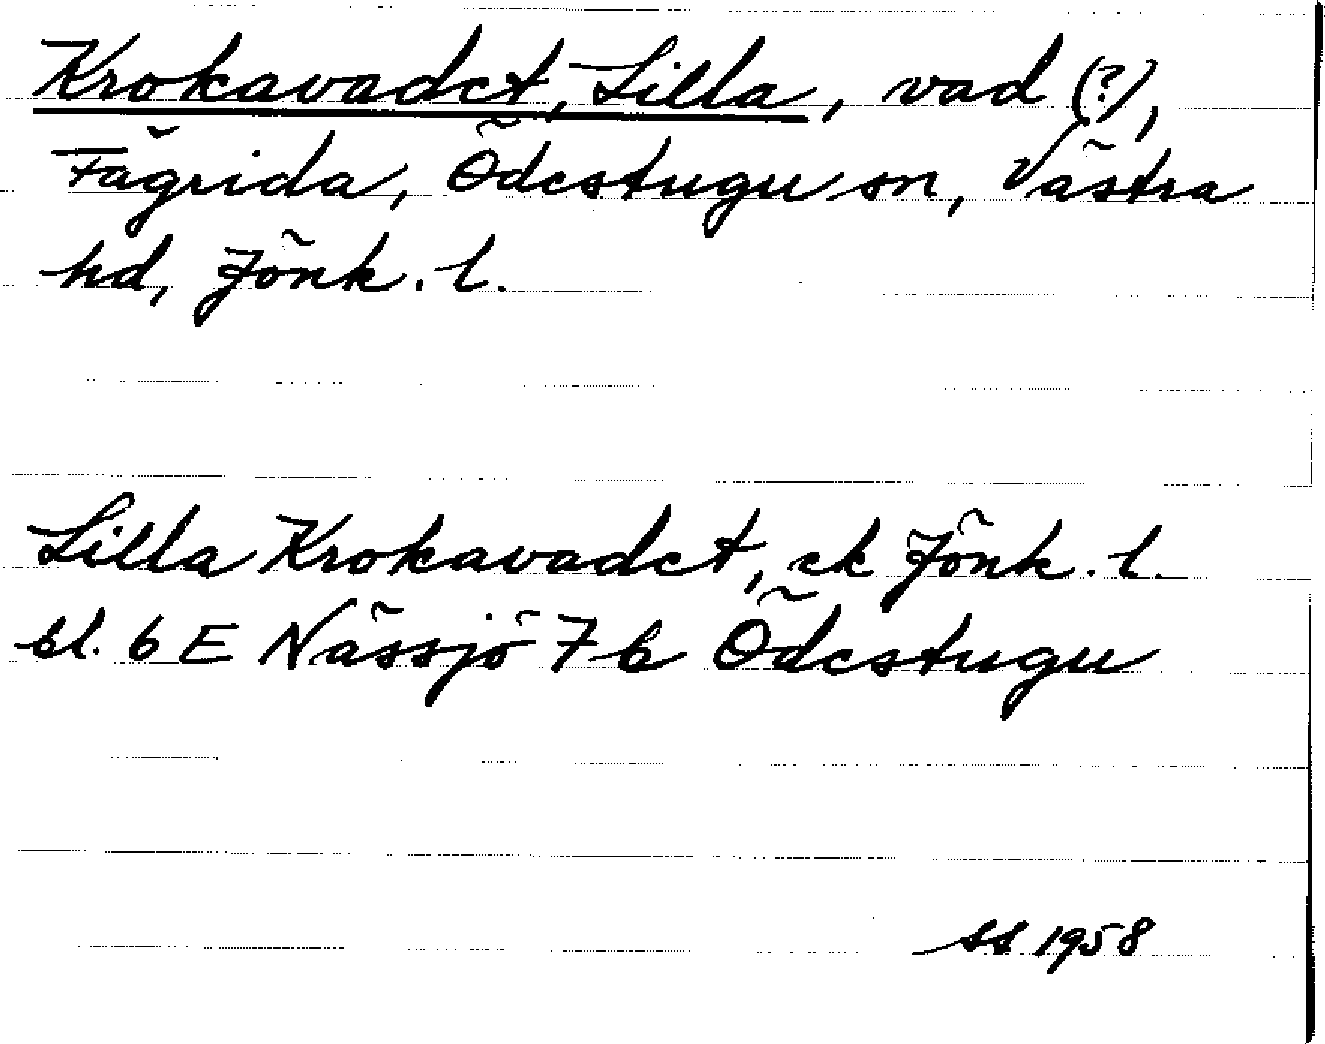 Krokavadet, Lilla, vad (?),
Fågrida, Ödestugu sn, Västra
hd, Jönk. l.
Lilla Krokavadet, ek Jönk. l.
bl. 6 E Nässjö 7 b Ödestugu
SS 1958